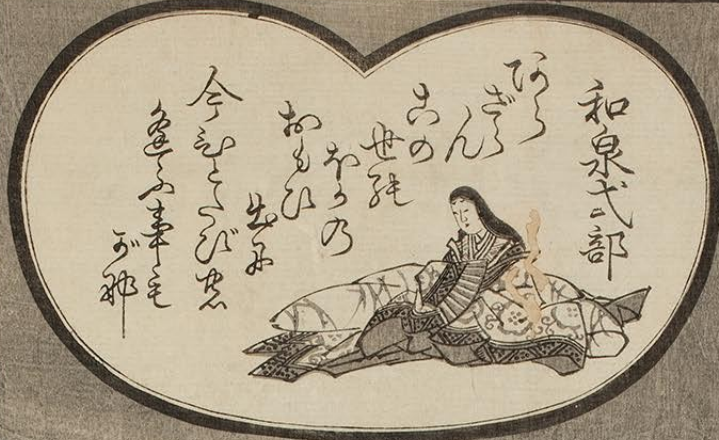 和泉式部
あら
ざらん
この
世の
ほかの
おもひ
出に
今ひとたびの
逢ふ事も
がな